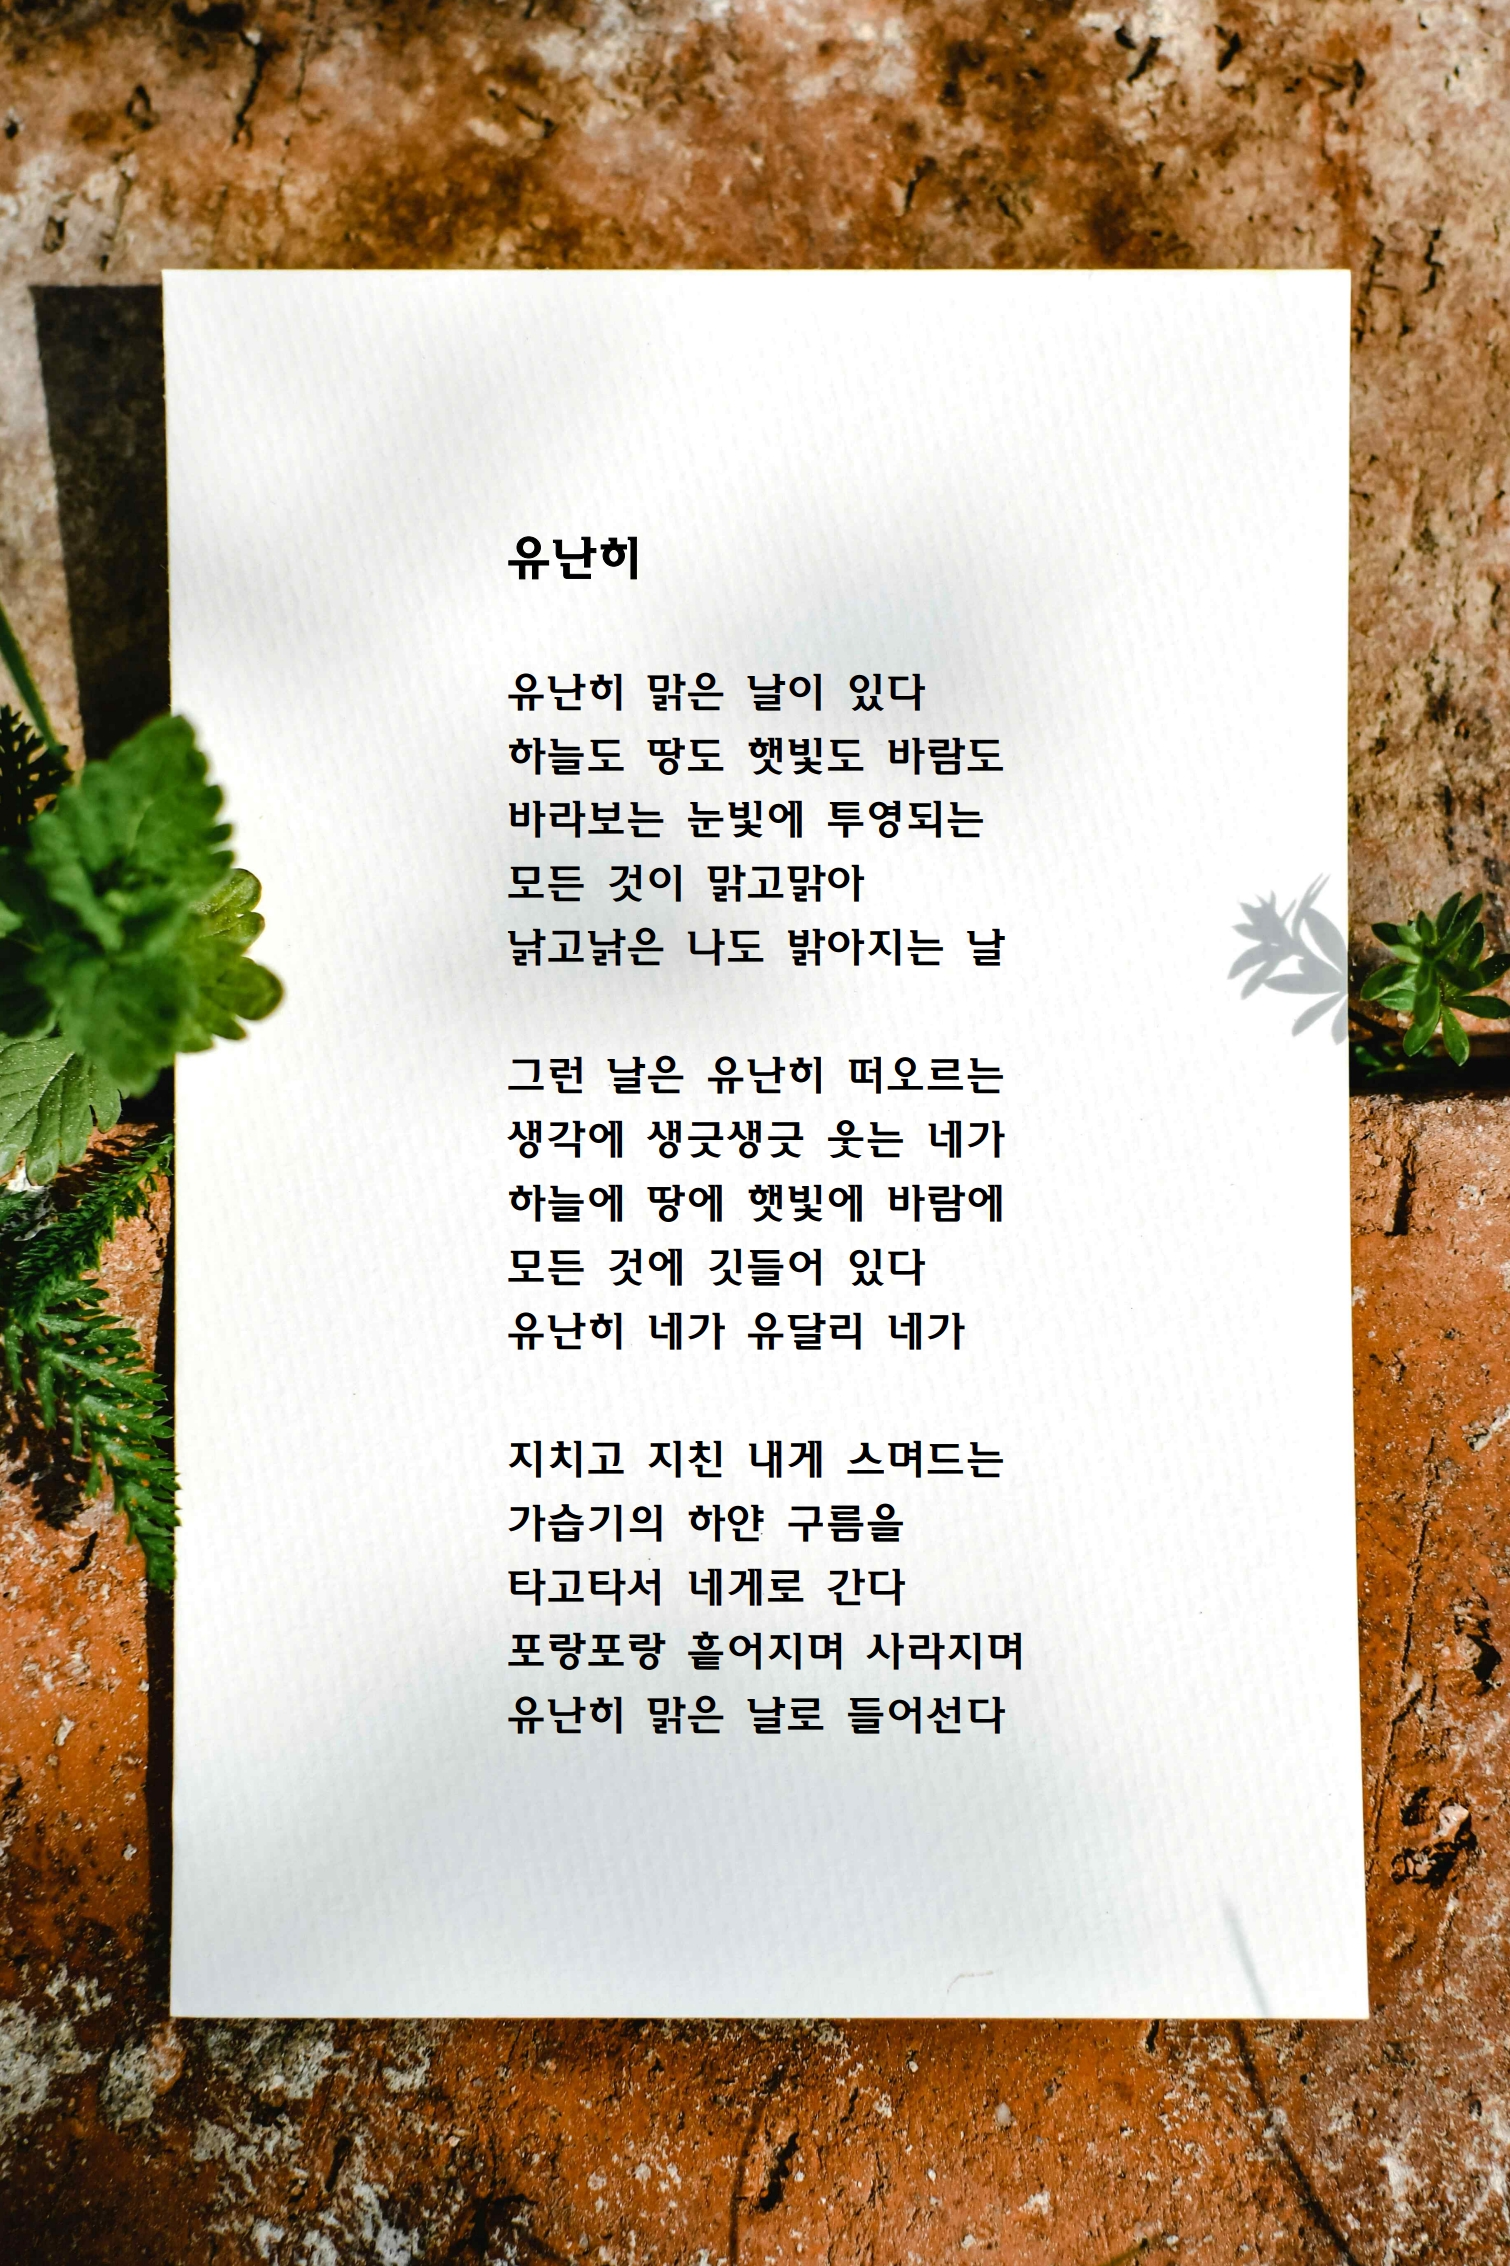 유난히
유난히 맑은 날이 있다
하늘도 땅도 햇빛도 바람도
바라보는 눈빛에 투영되는
모든 것이 맑고맑아
낡고낡은 나도 밝아지는 날
그런 날은 유난히 떠오르는
생각에 생긋생긋 웃는 네가
하늘에 땅에 햇빛에 바람에
모든 것에 깃들어 있다
유난히 네가 유달리 네가
지치고 지친 내게 스며드는
가습기의 하얀 구름을
타고타서 네게로 간다
포랑포랑 흩어지며 사라지며
유난히 맑은 날로 들어선다